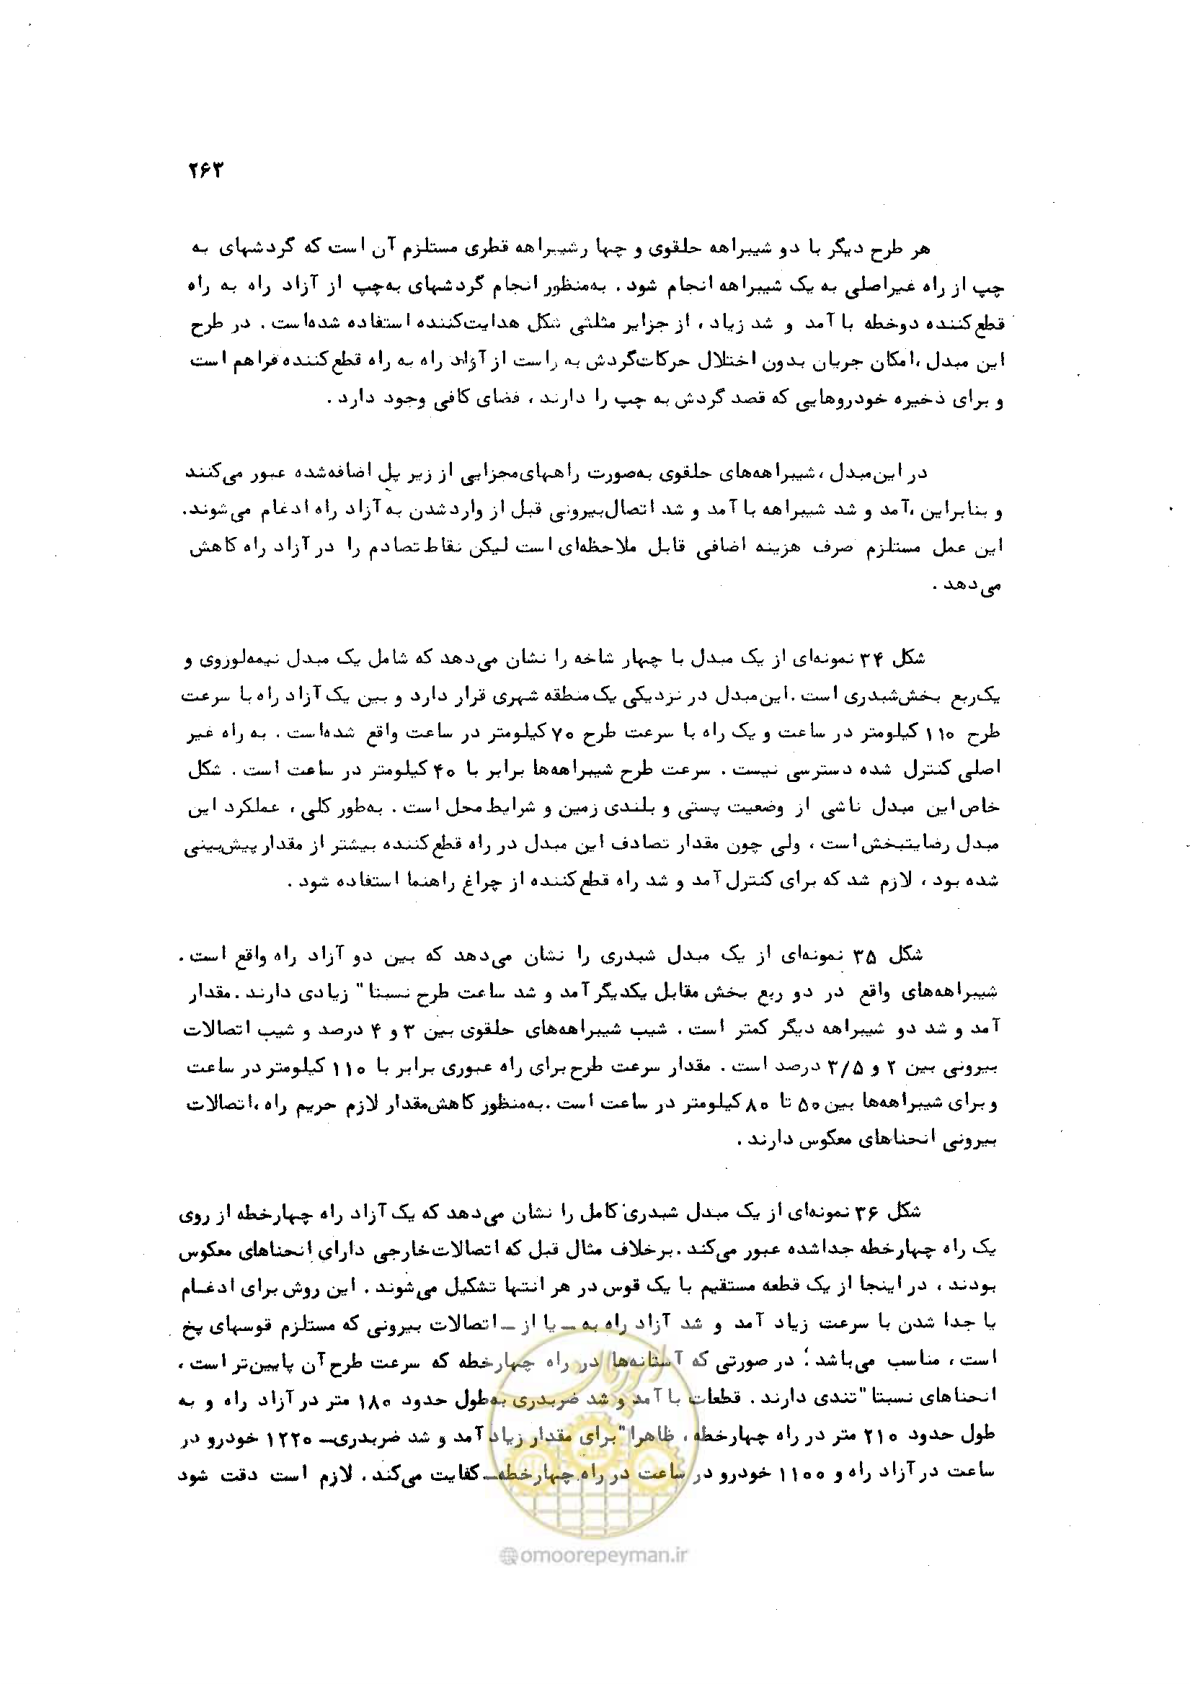 ۲۶۳
هر طرح دیگر با دو شیبراهه حلقوی و چهار شیبراهه قطری مستلزم آن است که گردشهای به
چپ از راه غیراصلی به یک شیبراهه انجام شود. به‌منظور انجام گردشهای به‌چپ از آزاد راه به راه
قطع‌کننده دوخطه با آمد و شد زیاد، از جزایر مثلثی شکل هدایت‌کننده استفاده شده‌است. در طرح
این مبدل، امکان جریان بدون اختلال حرکات‌گردش به راست از آزاد راه به راه قطع‌کننده فراهم است
و برای ذخیره خودروهایی که قصد گردش به چپ را دارند، فضای کافی وجود دارد.
در این‌مبدل، شیبراهه‌های حلقوی به‌صورت راههای‌مجزایی از زیر پل اضافه‌شده عبور می‌کنند
و بنابراین، آمد و شد شیبراهه با آمد و شد اتصال‌بیرونی قبل از واردشدن به آزاد راه ادغام می‌شوند.
این عمل مستلزم صرف هزینه اضافی قابل ملاحظه‌ای است لیکن نقاط تصادم را در آزاد راه کاهش
می‌دهد.
شکل ۳۴ نمونه‌ای از یک مبدل با چهار شاخه را نشان می‌دهد که شامل یک مبدل نیمه‌لوزوی و
یک‌ربع بخش‌شبدری است. این‌مبدل در نزدیکی یک‌منطقه شهری قرار دارد و بین یک آزاد راه با سرعت
طرح ۱۱۰ کیلومتر در ساعت و یک راه با سرعت طرح ۷۰ کیلومتر در ساعت واقع شده‌است. به راه غیر
اصلی کنترل شده دسترسی نیست. سرعت طرح شیبراهه‌ها برابر با ۴۰ کیلومتر در ساعت است. شکل
خاص‌این مبدل ناشی از وضعیت پستی و بلندی زمین و شرایط محل است. به‌طور کلی، عملکرد این
مبدل رضایتبخش است، ولی چون مقدار تصادف این مبدل در راه قطع‌کننده بیشتر از مقدار پیش‌بینی
شده بود، لازم شد که برای کنترل آمد و شد راه قطع‌کننده از چراغ راهنما استفاده شود.
شکل ۳۵ نمونه‌ای از یک مبدل شبدری را نشان می‌دهد که بین دو آزاد راه واقع است.
شیبراهه‌های واقع در دو ربع بخش مقابل یکدیگر آمد و شد ساعت طرح نسبتا" زیادی دارند. مقدار
آمد و شد دو شیبراهه دیگر کمتر است. شیب شیبراهه‌های حلقوی بین ۳ و ۴ درصد و شیب اتصالات
بیرونی بین ۲ و ۳/۵ درصد است. مقدار سرعت طرح برای راه عبوری برابر با ۱۱۰ کیلومتر در ساعت
و برای شیبراهه‌ها بین ۵۰ تا ۸۰ کیلومتر در ساعت است. به‌منظور کاهش‌مقدار لازم حریم راه، اتصالات
بیرونی انحناهای معکوس دارند.
شکل ۳۶ نمونه‌ای از یک مبدل شبدری کامل را نشان می‌دهد که یک آزاد راه چهارخطه از روی
یک راه چهارخطه جداشده عبور می‌کند. برخلاف مثال قبل که اتصالات‌خارجی دارای انحناهای معکوس
بودند، در اینجا از یک قطعه مستقیم با یک قوس در هر انتها تشکیل می‌شوند. این روش برای ادغام
یا جدا شدن با سرعت زیاد آمد و شد آزاد راه به ــ یا از ــ اتصالات بیرونی که مستلزم قوسهای پخ
است، مناسب می‌باشد؛ در صورتی که آستانه‌ها در راه چهارخطه که سرعت طرح آن پایین‌تر است،
انحناهای نسبتا" تندی دارند. قطعات با آمد و شد ضربدری به‌طول حدود ۱۸۰ متر در آزاد راه و به
طول حدود ۲۱۰ متر در راه چهارخطه، ظاهرا" برای مقدار زیاد آمد و شد ضربدری ــ ۱۲۲۰ خودرو در
ساعت در آزاد راه و ۱۱۰۰ خودرو در ساعت در راه چهارخطه ــ کفایت می‌کند. لازم است دقت شود
@omoorepeyman.ir